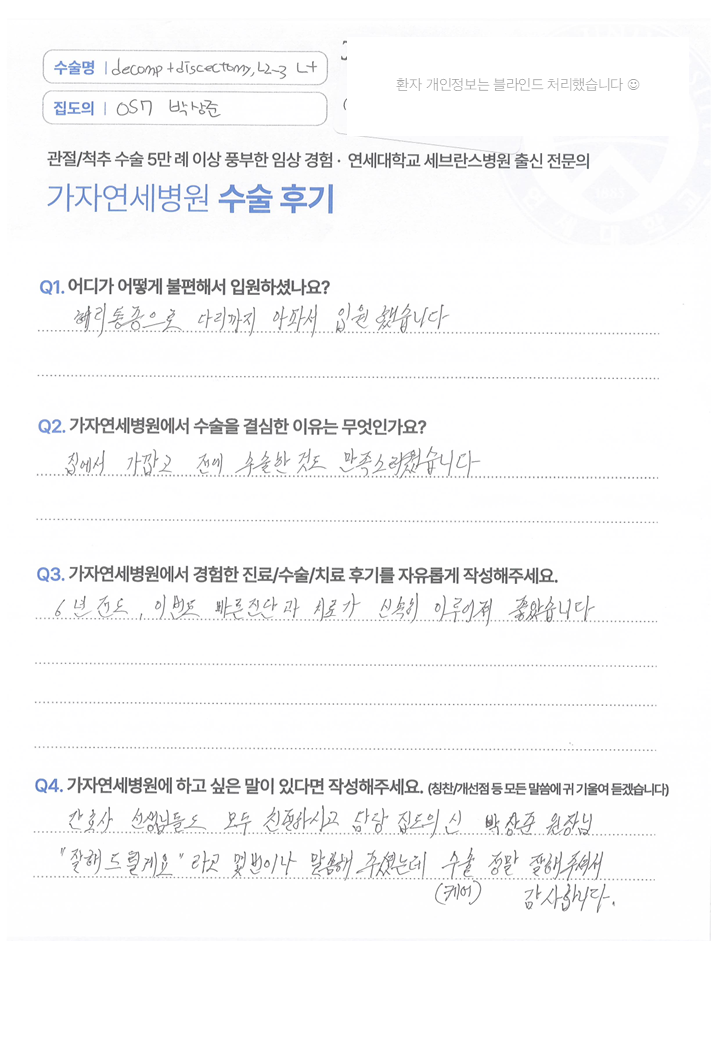 수술명 | decomp + discectomy, L2-3 Lt
집도의 | OS7 박상준
환자 개인정보는 블라인드 처리했습니다 ☺
관절/척추 수술 5만 례 이상 풍부한 임상 경험 · 연세대학교 세브란스병원 출신 전문의
가자연세병원 수술 후기
Q1. 어디가 어떻게 불편해서 입원하셨나요?
허리통증으로 다리까지 아파서 입원 했습니다
Q2. 가자연세병원에서 수술을 결심한 이유는 무엇인가요?
집에서 가깝고 전에 수술한것도 만족스러웠습니다
Q3. 가자연세병원에서 경험한 진료/수술/치료 후기를 자유롭게 작성해주세요.
6년전도, 이번도 빠른진단과 치료가 신속히 이루어져 좋았습니다
Q4. 가자연세병원에 하고 싶은 말이 있다면 작성해주세요. (칭찬/개선점 등 모든 말씀에 귀 기울여 듣겠습니다)
간호사 선생님들도 모두 친절하시고 담당 집도의신 박상준 원장님
"잘해드릴게요" 라고 몇번이나 말씀해 주셨는데 수술 정말 잘해주셔서
(케어) 감사합니다.